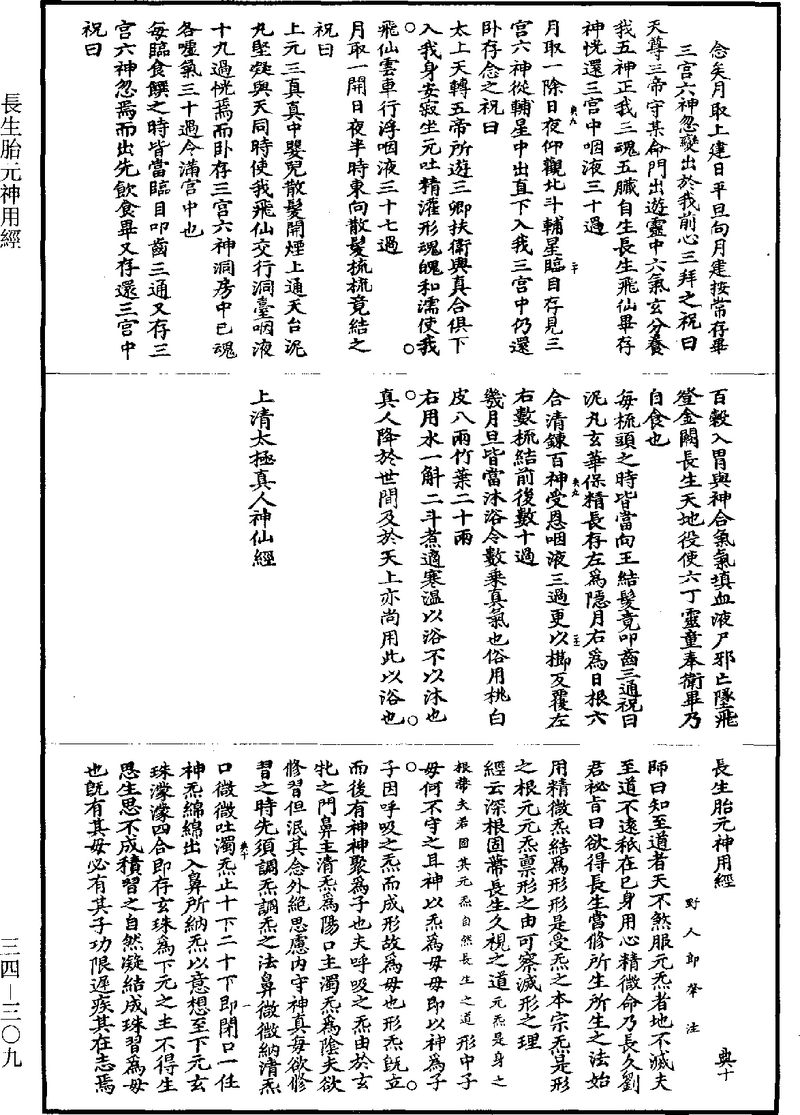 念矣月取上建日平旦向月建按常存畢
三宮六神忽變出於我前心三拜之祝曰
天尊三帝守某命門出遊靈中六氣玄分養
我五神正我三魂五臟自生長生飛仙畢存
神恍還三宮中咽液三十過
月取一除日夜仰觀北斗輔星臨目存見三
宮六神從輔星中出直下入我三宮中仍還
卧存念之祝曰
太上天轉五帝所遊三卿扶衛與真合俱下
入我身安寂坐元吐精灌形魂魄和濡使我
飛仙雲車行浮咽液三十七過
月取一開日夜半時東向散髮梳梳竟結之
祝曰
上元三真真中嬰兒散髮開煙上通天台泥
丸堅凝與天同時使我飛仙交行洞臺咽液
十九過恍焉而卧存三宮六神洞房中已魂
各噓氣三十過令滿宮中也
每臨食饌之時皆當臨目叩齒三通又存三
宮六神忽焉而出先飲食畢又存還三宮中
祝曰
百穀入胃與神合氣氣填血液尸邪亡墜飛
登金闕長生天地役使六丁靈童奉衛畢乃
自食也
每梳頭之時皆當向王結髮竟叩齒三通祝曰
泥丸玄華保精長存左爲隱月右爲日根六
合清鍊百神受恩咽液三過更以櫛反覆左
右數梳結前後數十過
幾月旦皆當沐浴令數乘真氣也俗用桃白
皮八兩竹葉二十兩
右用水一斛二斗煮適寒溫以浴不以沐也
真人降於世間及於天上亦尚用此以浴也
上清太極真人神仙經
長生胎元神用經 典十
野人邱肇注
師曰知至道者天不煞服元炁者地不滅夫
至道不遠秖在己身用心精微命乃長久劉
君祕旨曰欲得長生當修所生所生之法始
用精微炁結爲形形是受炁之本宗炁是形
之根元元炁禀形之由可察滅形之理
經云深根固蔕長生久視之道元炁是身之
根蔕夫若固其元炁自然長生之道形中子
母何不守之且神以炁爲母母即以神爲子
子因呼吸之炁而成形故爲母也形炁既立
而後有神神聚爲子也夫呼吸之炁由於玄
牝之門鼻主清炁爲陽口主濁炁爲陰夫欲
修習但泯其念外絕思慮内守神真每欲修
習之時先須調炁調炁之法鼻微微納清炁
口微微吐濁炁止十下二十下即閉口一任
神炁綿綿出入鼻所納炁以意想至下元玄
珠濛濛四合即存玄珠爲下元之主不得生
思生思不成積習之自然凝結成珠習爲母
也既有其母必有其子功限遲疾其在志焉
長生胎元神用經
三四—三〇九